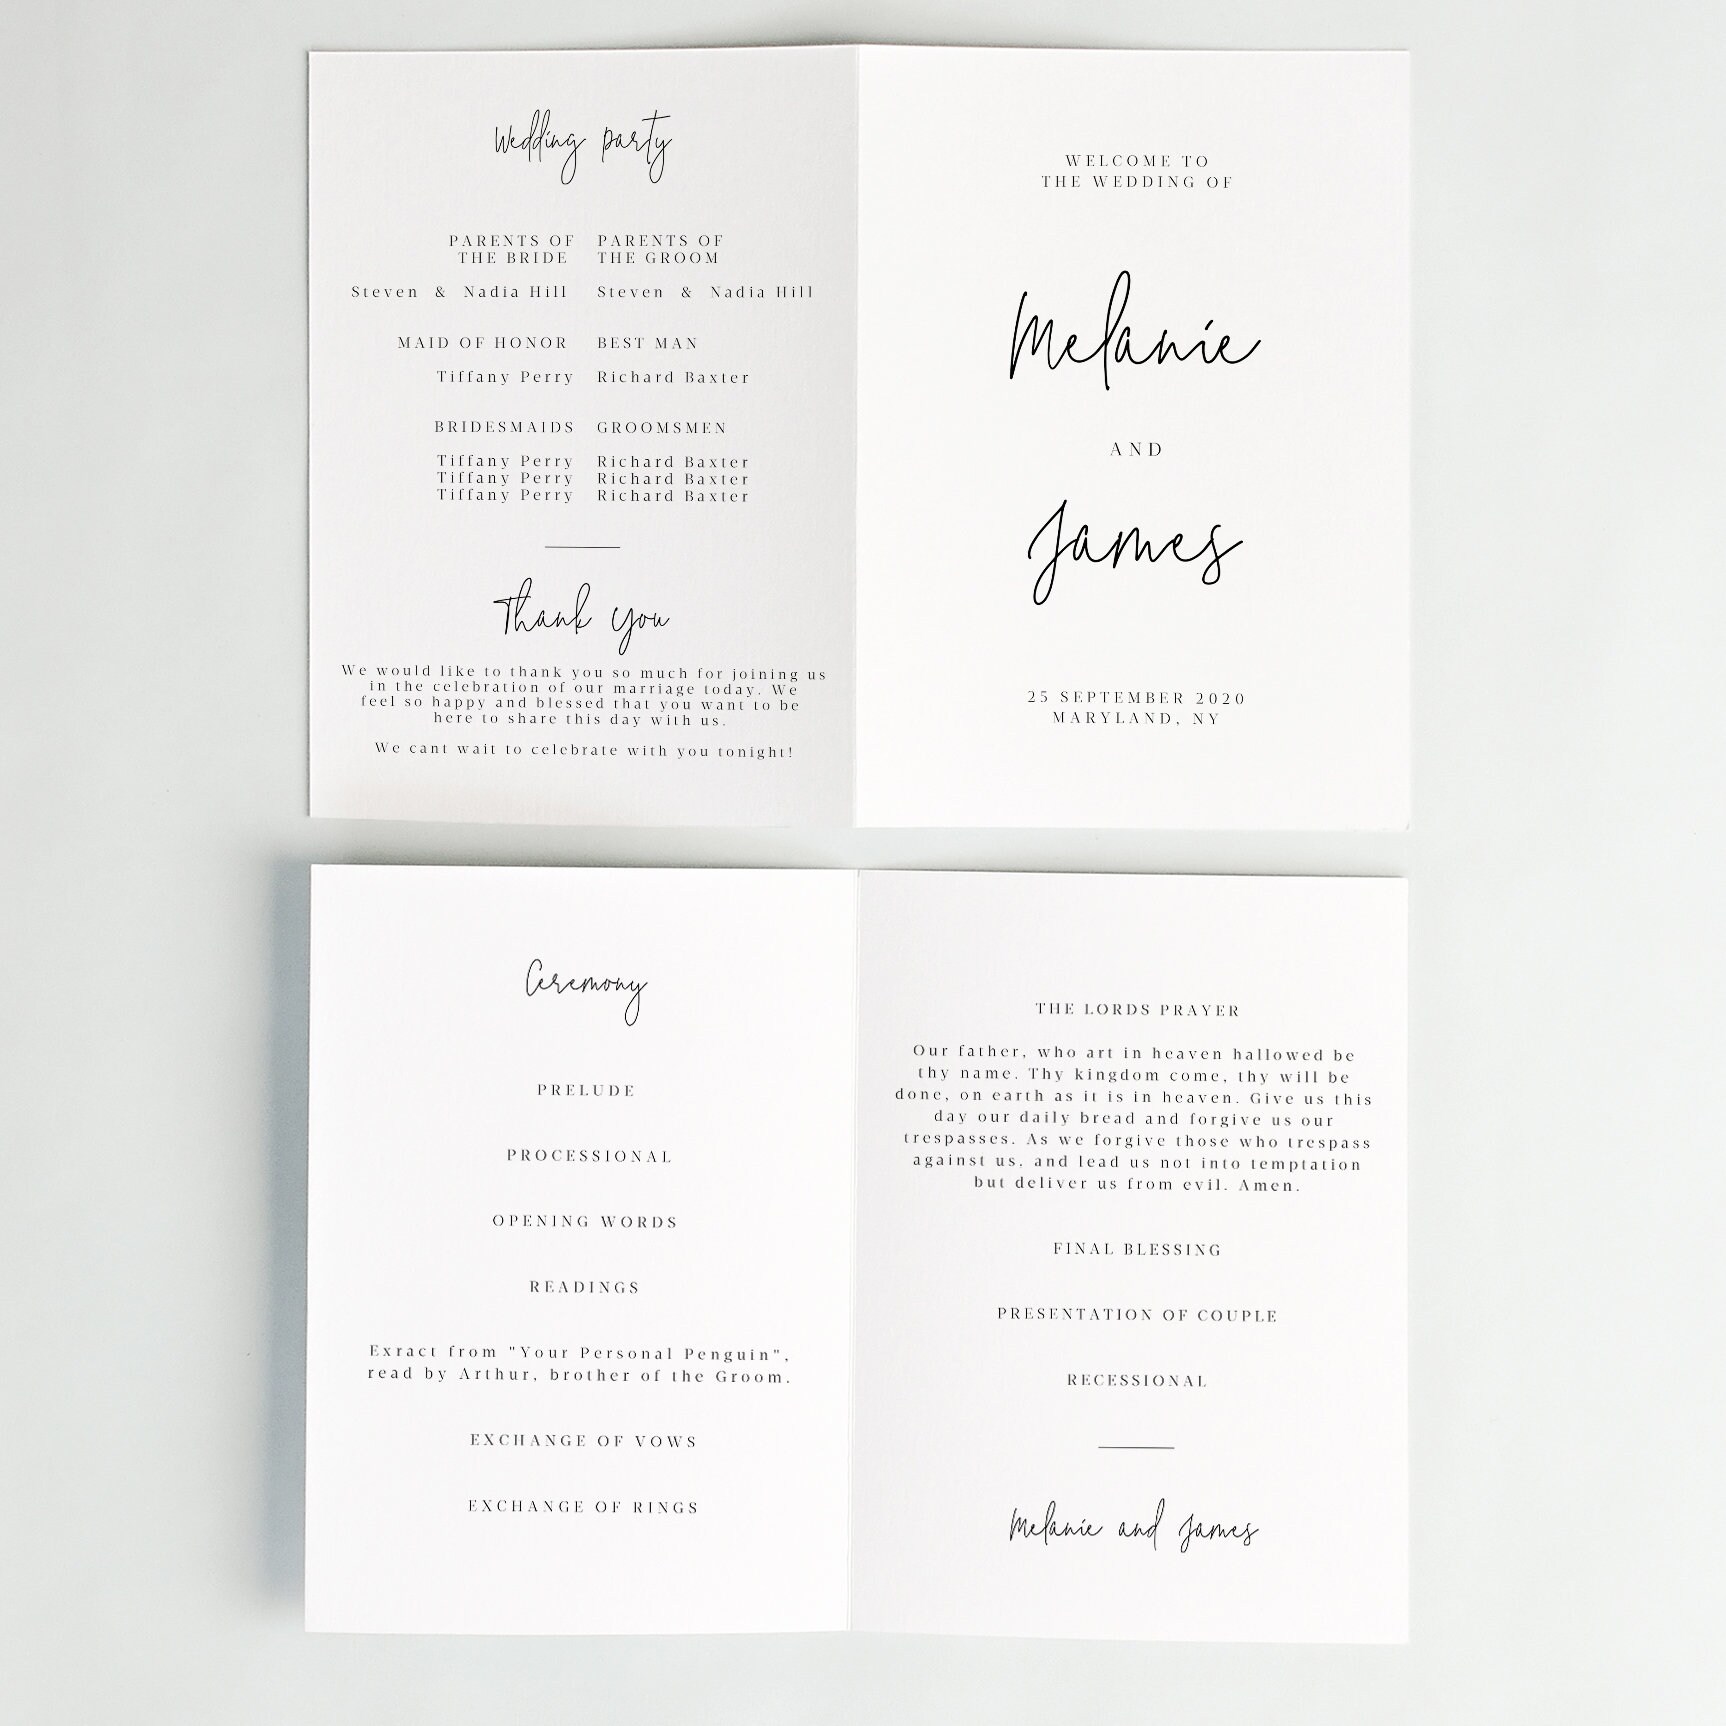 Wedding party
PARENTS OF
THE BRIDE
Steven & Nadia Hill
PARENTS OF
THE GROOM
Steven & Nadia Hill
MAID OF HONOR
Tiffany Perry
BEST MAN
Richard Baxter
BRIDESMAIDS
Tiffany Perry
Tiffany Perry
Tiffany Perry
GROOMSMEN
Richard Baxter
Richard Baxter
Richard Baxter
Thank you
We would like to thank you so much for joining us
in the celebration of our marriage today. We
feel so happy and blessed that you want to be
here to share this day with us.
We cant wait to celebrate with you tonight!
WELCOME TO
THE WEDDING OF
Melanie
AND
James
25 SEPTEMBER 2020
MARYLAND, NY
Ceremony
PRELUDE
PROCESSIONAL
OPENING WORDS
READINGS
Exract from "Your Personal Penguin",
read by Arthur, brother of the Groom.
EXCHANGE OF VOWS
EXCHANGE OF RINGS
THE LORDS PRAYER
Our father, who art in heaven hallowed be
thy name. Thy kingdom come, thy will be
done, on earth as it is in heaven. Give us this
day our daily bread and forgive us our
trespasses. As we forgive those who trespass
against us, and lead us not into temptation
but deliver us from evil. Amen.
FINAL BLESSING
PRESENTATION OF COUPLE
RECESSIONAL
Melanie and James